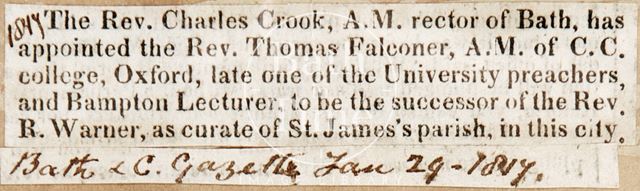 1817 The Rev. Charles Crook, A.M. rector of Bath, has
appointed the Rev. Thomas Falconer, A.M. of C.C.
college, Oxford, late one of the University preachers,
and Bampton Lecturer, to be the successor of the Rev.
R. Warner, as curate of St. James's parish, in this city.
Bath & C. Gazette Jan 29-1817.